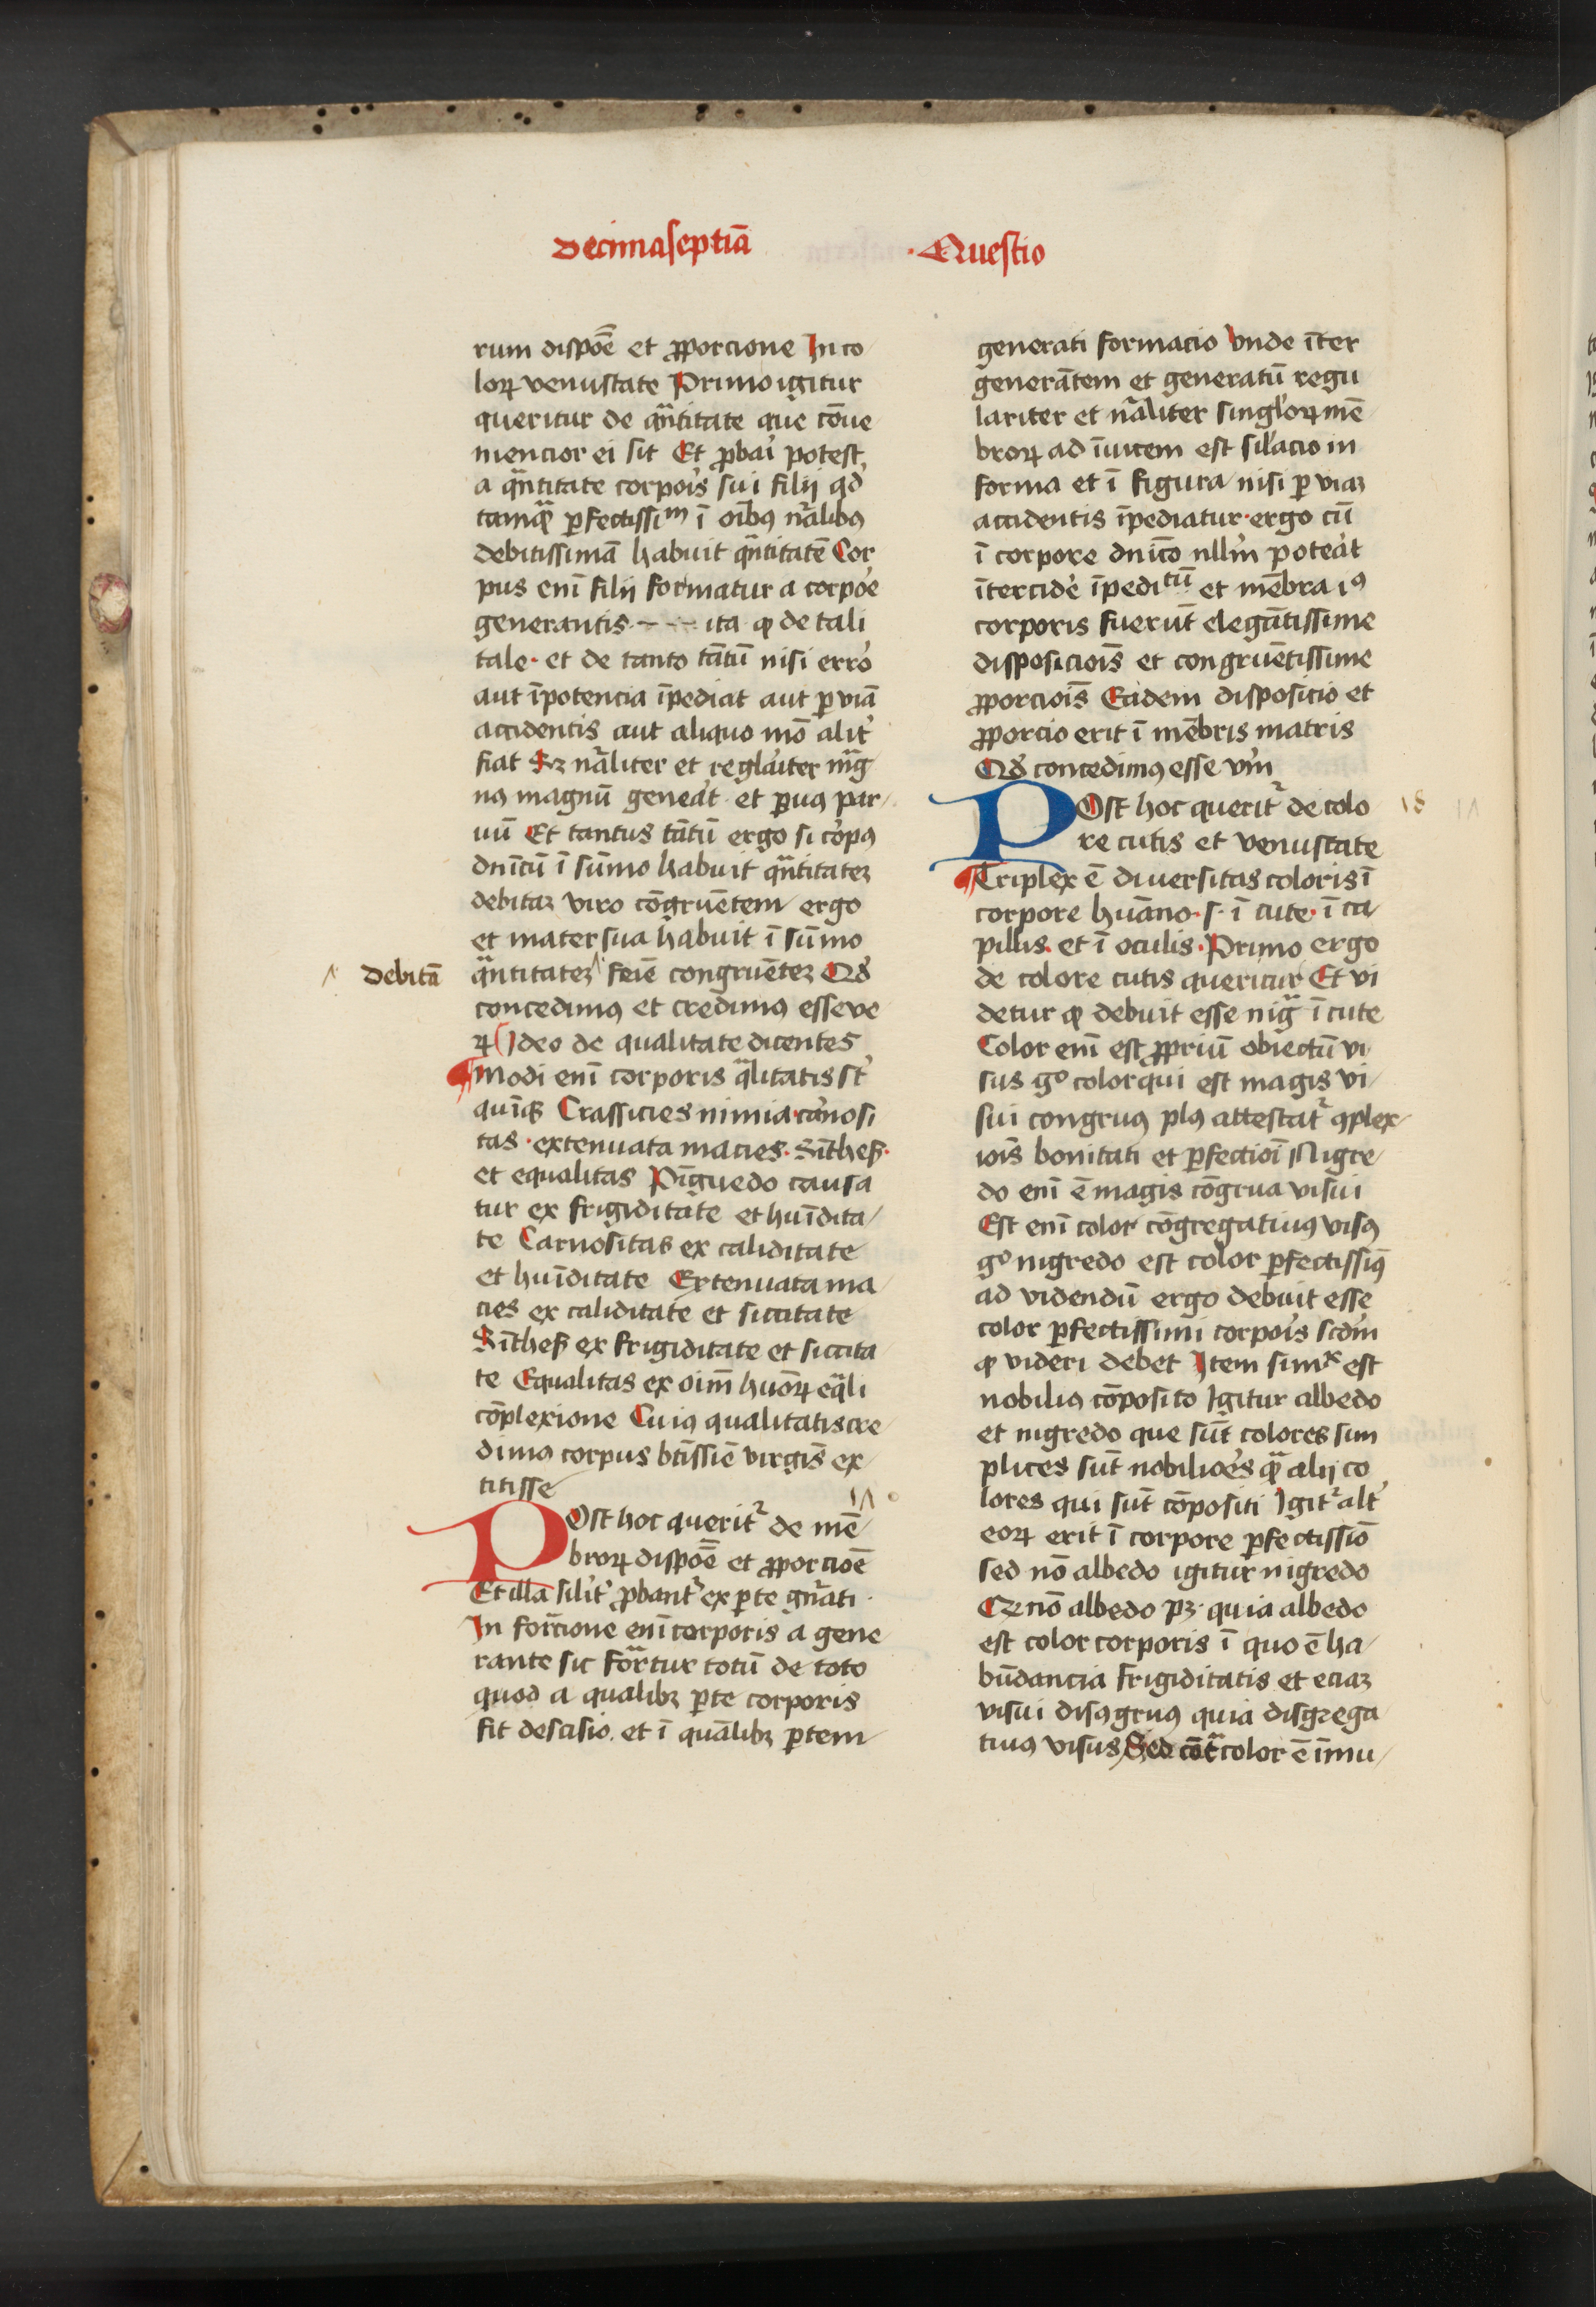 Decimaseptīa
·Questio
rum dispōe et ꝓporcione In co
loꝝ venustate Primo igitur
queritur de qͣntitate que cōue
niencior ei sit Et ꝓbari potest
a qͣntitate corpois sui filij qd
tamqͣ ꝑfectissiᵐ ī oībꝰ nr̄alibꝰ
debitissimā habuit qͣntitatē Cor
pus enī filij formatur a corpoe
generantis ita ꝙ de tali
tale· et de tanto tātū nisi erro
aut īpotencia īpediat aut ꝑ viā
accidentis aut aliquo mō alit᷑
fiat Sꝫ nr̄aliter et reglariter mͣg
nꝰ magnū geneat et ꝑuꝰ par
uū Et tantus tātū ergo si corpꝰ
dnīcū ī sūmo habuit qͣntitateꝫ
debitaꝫ viro cōgruētem ergo
et mater sua habuit ī sūmo
debitā
qͣntitateꝫ feīe congruēteꝫ Qd
concedimꝰ et credimꝰ esse ve
ꝝ Ideo de qualitate dicentes
Modi enī corporis qͣlitatis st᷑
quīqꝫ Crassicies nimia carnosi
tas ·extenuata macies· Sīthes·
et equalitas Pīguedo causa
tur ex frigiditate et huīdita
te Carnositas ex caliditate
et huīditate Extenuata ma
cies ex caliditate et siccitate
Sīthes ex frigiditate et siccita
te Equalitas ex oim̄ huōꝝ eqͣli
cōplexione Cuiꝰ qualitatis cre
dimꝰ corpus btīssīe virgīs ex
titisse
Post hoc querit᷑ de mē
broꝝ dispōe et ꝓporcioē
Et illa silit᷑ ꝓbant᷑ ex ꝑte gn̄ati·
In forͣcione enī corporis a gene
rante sic forͣtur totū de toto
quod a qualibꝫ ꝑte corporis
fit descisio. et ī quālibꝫ ꝑtem
generati formacio Vnde īter
generātem et generatū regu
lariter et nr̄aliter singloꝝ mē
broꝝ ad īuicem est silacio in
forma et ī figura nisi ꝑ viaꝫ
accidentis īpediatur· ergo cū
ī corpore dnīco nllm̄ poteat
īterciде īpeditū et mēbra iꝰ
corporis fuerūt elegātissime
disposicioīs et congruētissime
ꝓporcioīs Eadem disposicio et
ꝓporcio erit ī mēbris matris
Qd concedimꝰ esse vm̄
Post hoc querit᷑ de colo
18
re cutis et venustate
Triplex ē diuersitas coloris ī
corpore huāno· s· ī cute· ī ca
pillis et ī oculis· Primo ergo
de colore cutis queritur Et vi
detur ꝙ debuit esse nigͣ ī cute
Color enī est ꝓpriū obiectū vi
sus gͦ color qui est magis vi
sui congruꝰ plꝰ attestat᷑ ꝯplex
ioīs bonitati et ꝑfectioī Nigre
do enī ē magis cōgrua visui
Est enī color cōgregatiuꝰ visꝰ
gͦ nigredo est color ꝑfectissiꝰ
ad videndū ergo debuit esse
color ꝑfectissimi corpois scdm̄
ꝙ videri debet Item simˣ est
nobiliꝰ cōposito Igitur albedo
et nigredo que sūt colores sim
plices sūt nobilioes qͣ alij co
lores qui sūt cōpositi Igit᷑ alt᷑
eoꝝ erit ī corpore ꝑfectissīo
sed nō albedo igitur nigredo
Qꝫ nō albedo pꝫ· quia albedo
est color corporis ī quo ē ha
būdancia frigiditatis et eciaꝫ
visui disꝯgruꝰ quia disgrega
tiuꝰ visus Sed cōtͣ color ē īmu